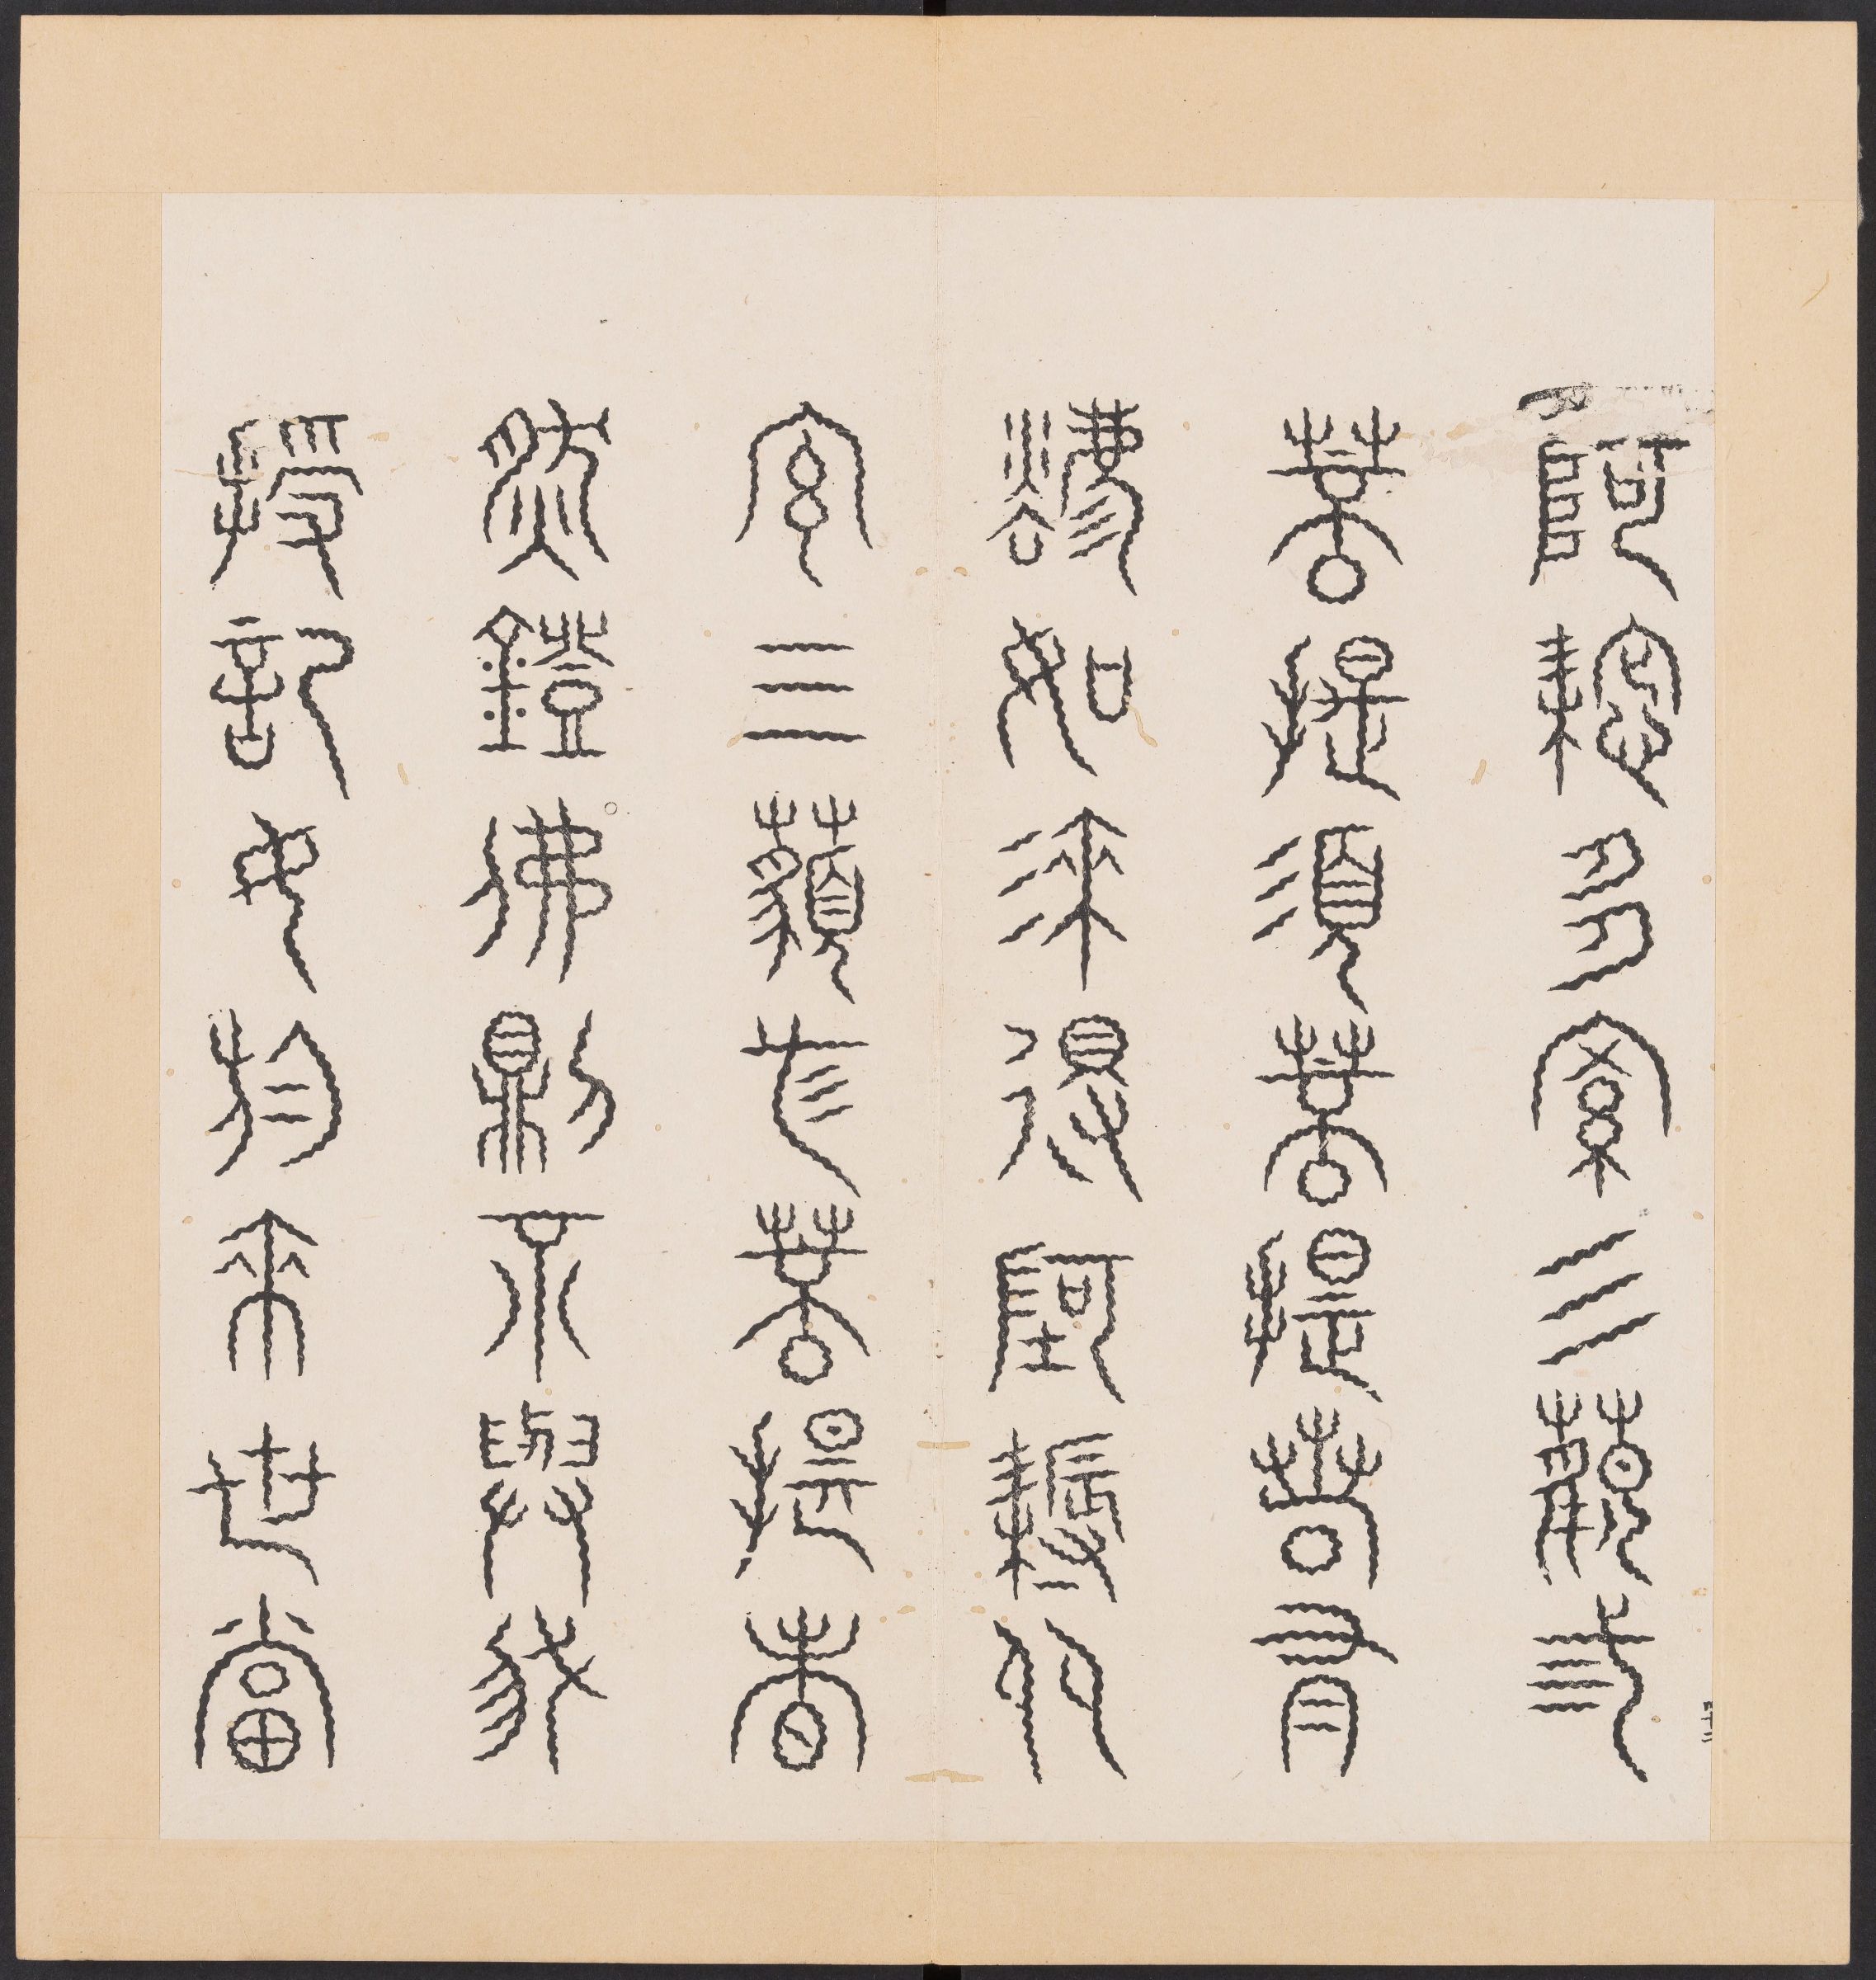 阿耨多羅三藐三
菩提須菩提若有
法如來得阿耨多
羅三藐三菩提者
然燈佛則不與我
授記汝於來世當